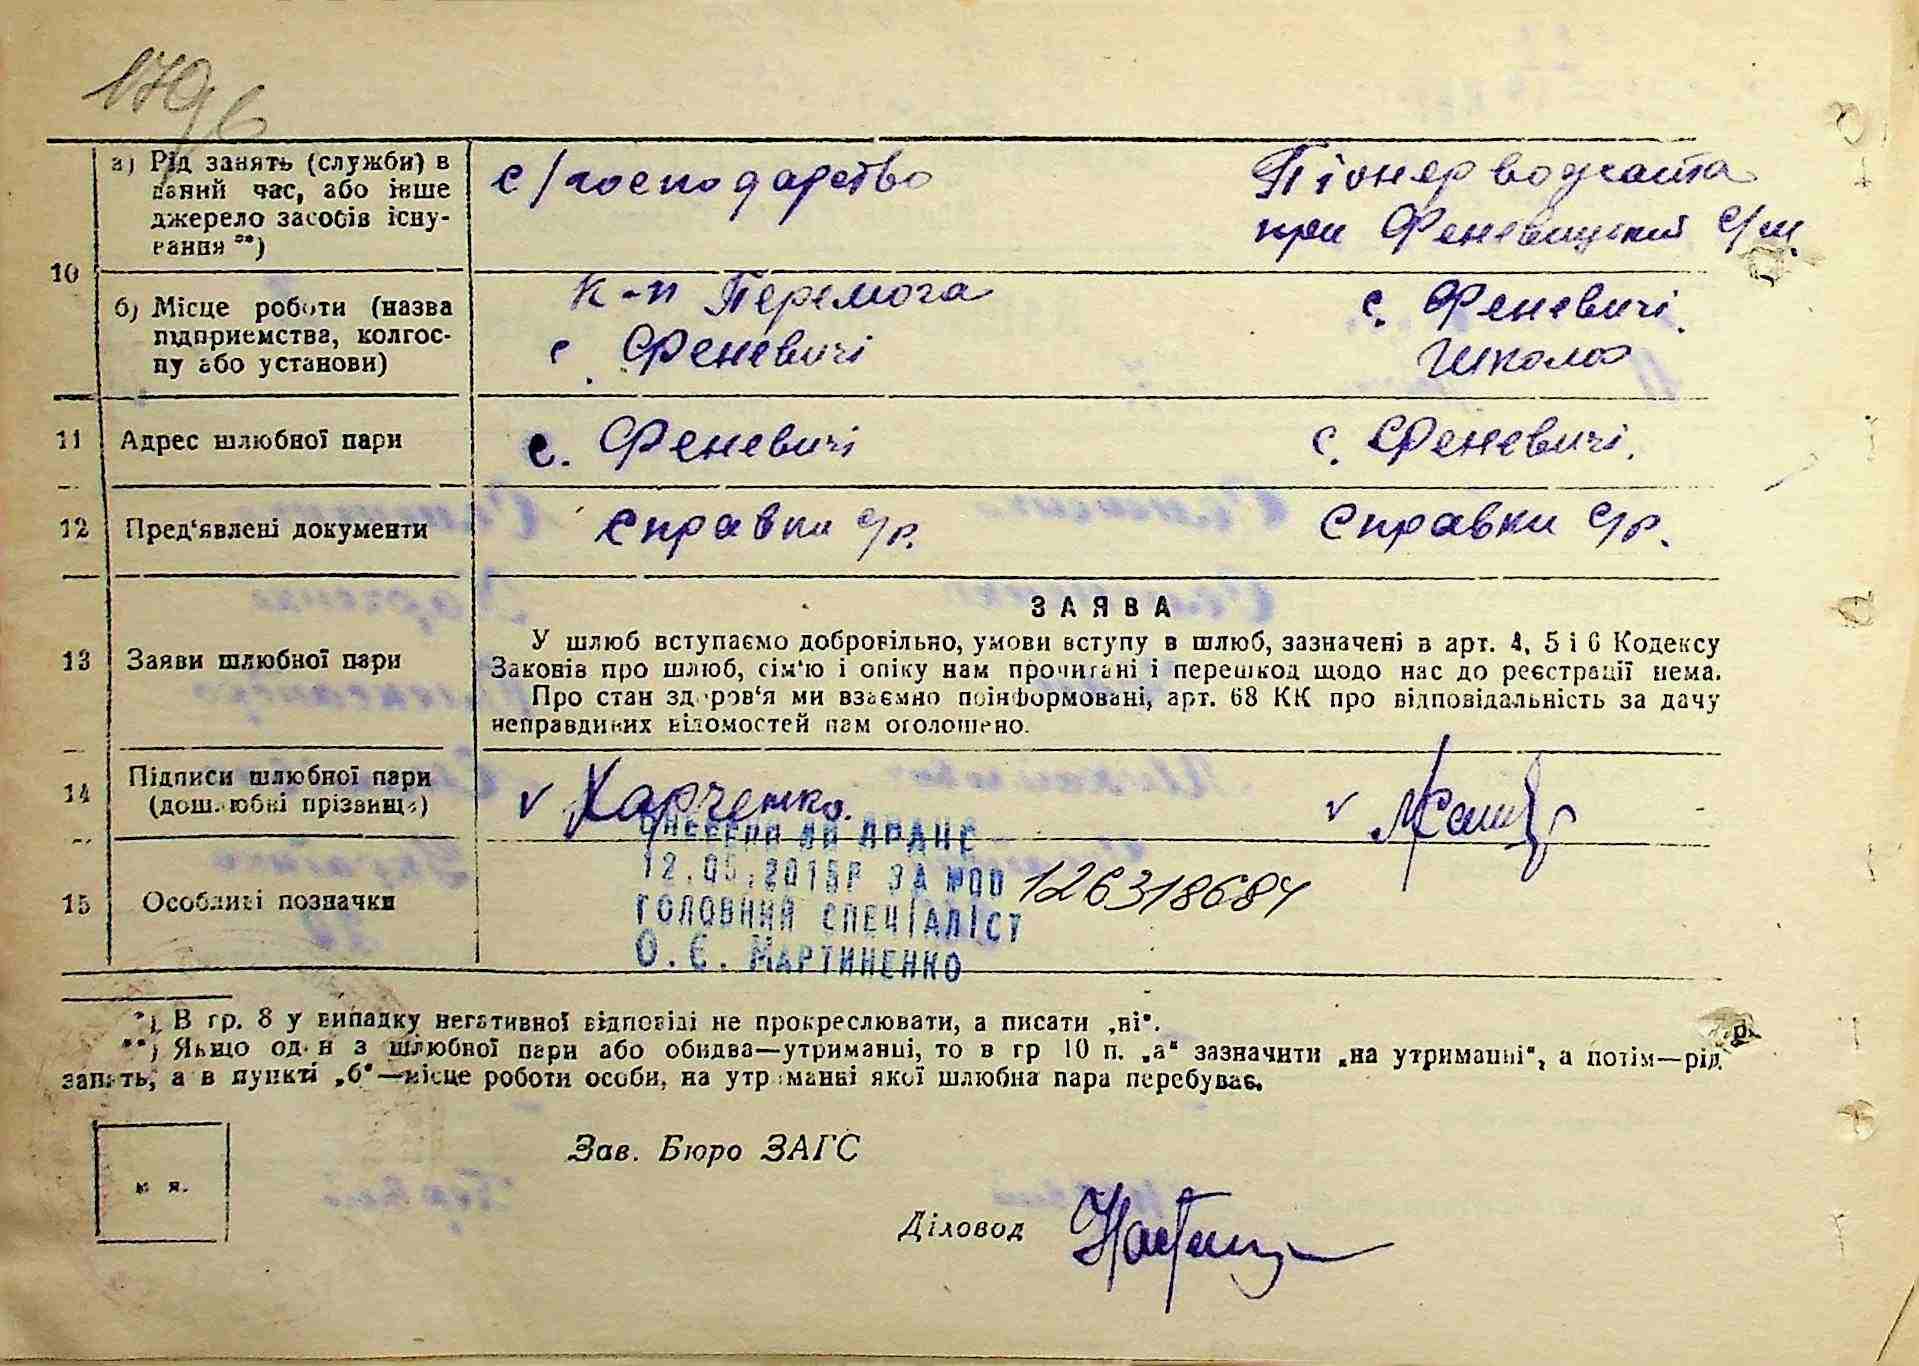 1796
10
а) Рід занять (служби) в
даний час, або інше
джерело засобів існу-
вання **)
с/господарство
Піонервожата
при Феневицькій с/ш.
б) Місце роботи (назва
підприємства, колгос-
пу або установи)
к-п Перемога
с. Феневичі
с. Феневичі.
Школа
11 Адрес шлюбної пари
с. Феневичі
с. Феневичі.
12 Пред'явлені документи
Справки с/р.
Справки с/р.
13 Заяви шлюбної пари
ЗАЯВА
У шлюб вступаємо добровільно, умови вступу в шлюб, зазначені в арт. 4, 5 і 6 Кодексу
Законів про шлюб, сім'ю і опіку нам прочитані і перешкод щодо нас до реєстрації нема.
Про стан здоров'я ми взаємно поінформовані, арт. 68 КК про відповідальність за дачу
неправдивих відомостей нам оголошено.
14 Підписи шлюбної пари
(дошлюбні прізвища)
v Харченко.
v
15 Особливі позначки
ВНЕСЕНО ДО ДРАЦС
12.05.2015Р ЗА №00 126318684
ГОЛОВНИЙ СПЕЦІАЛІСТ
О. Є. МАРТИНЕНКО
*) В гр. 8 у випадку негативної відповіді не прокреслювати, а писати „ні".
**) Якщо один з шлюбної пари або обидва—утриманці, то в гр 10 п. „а" зазначити „на утриманні", а потім—рід
занять, а в пункті „б"—місце роботи особи, на утриманні якої шлюбна пара перебуває.
м п.
Зав. Бюро ЗАГС
Діловод